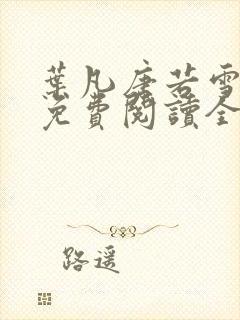 葉凡唐若雪
免費閱讀全
路遥